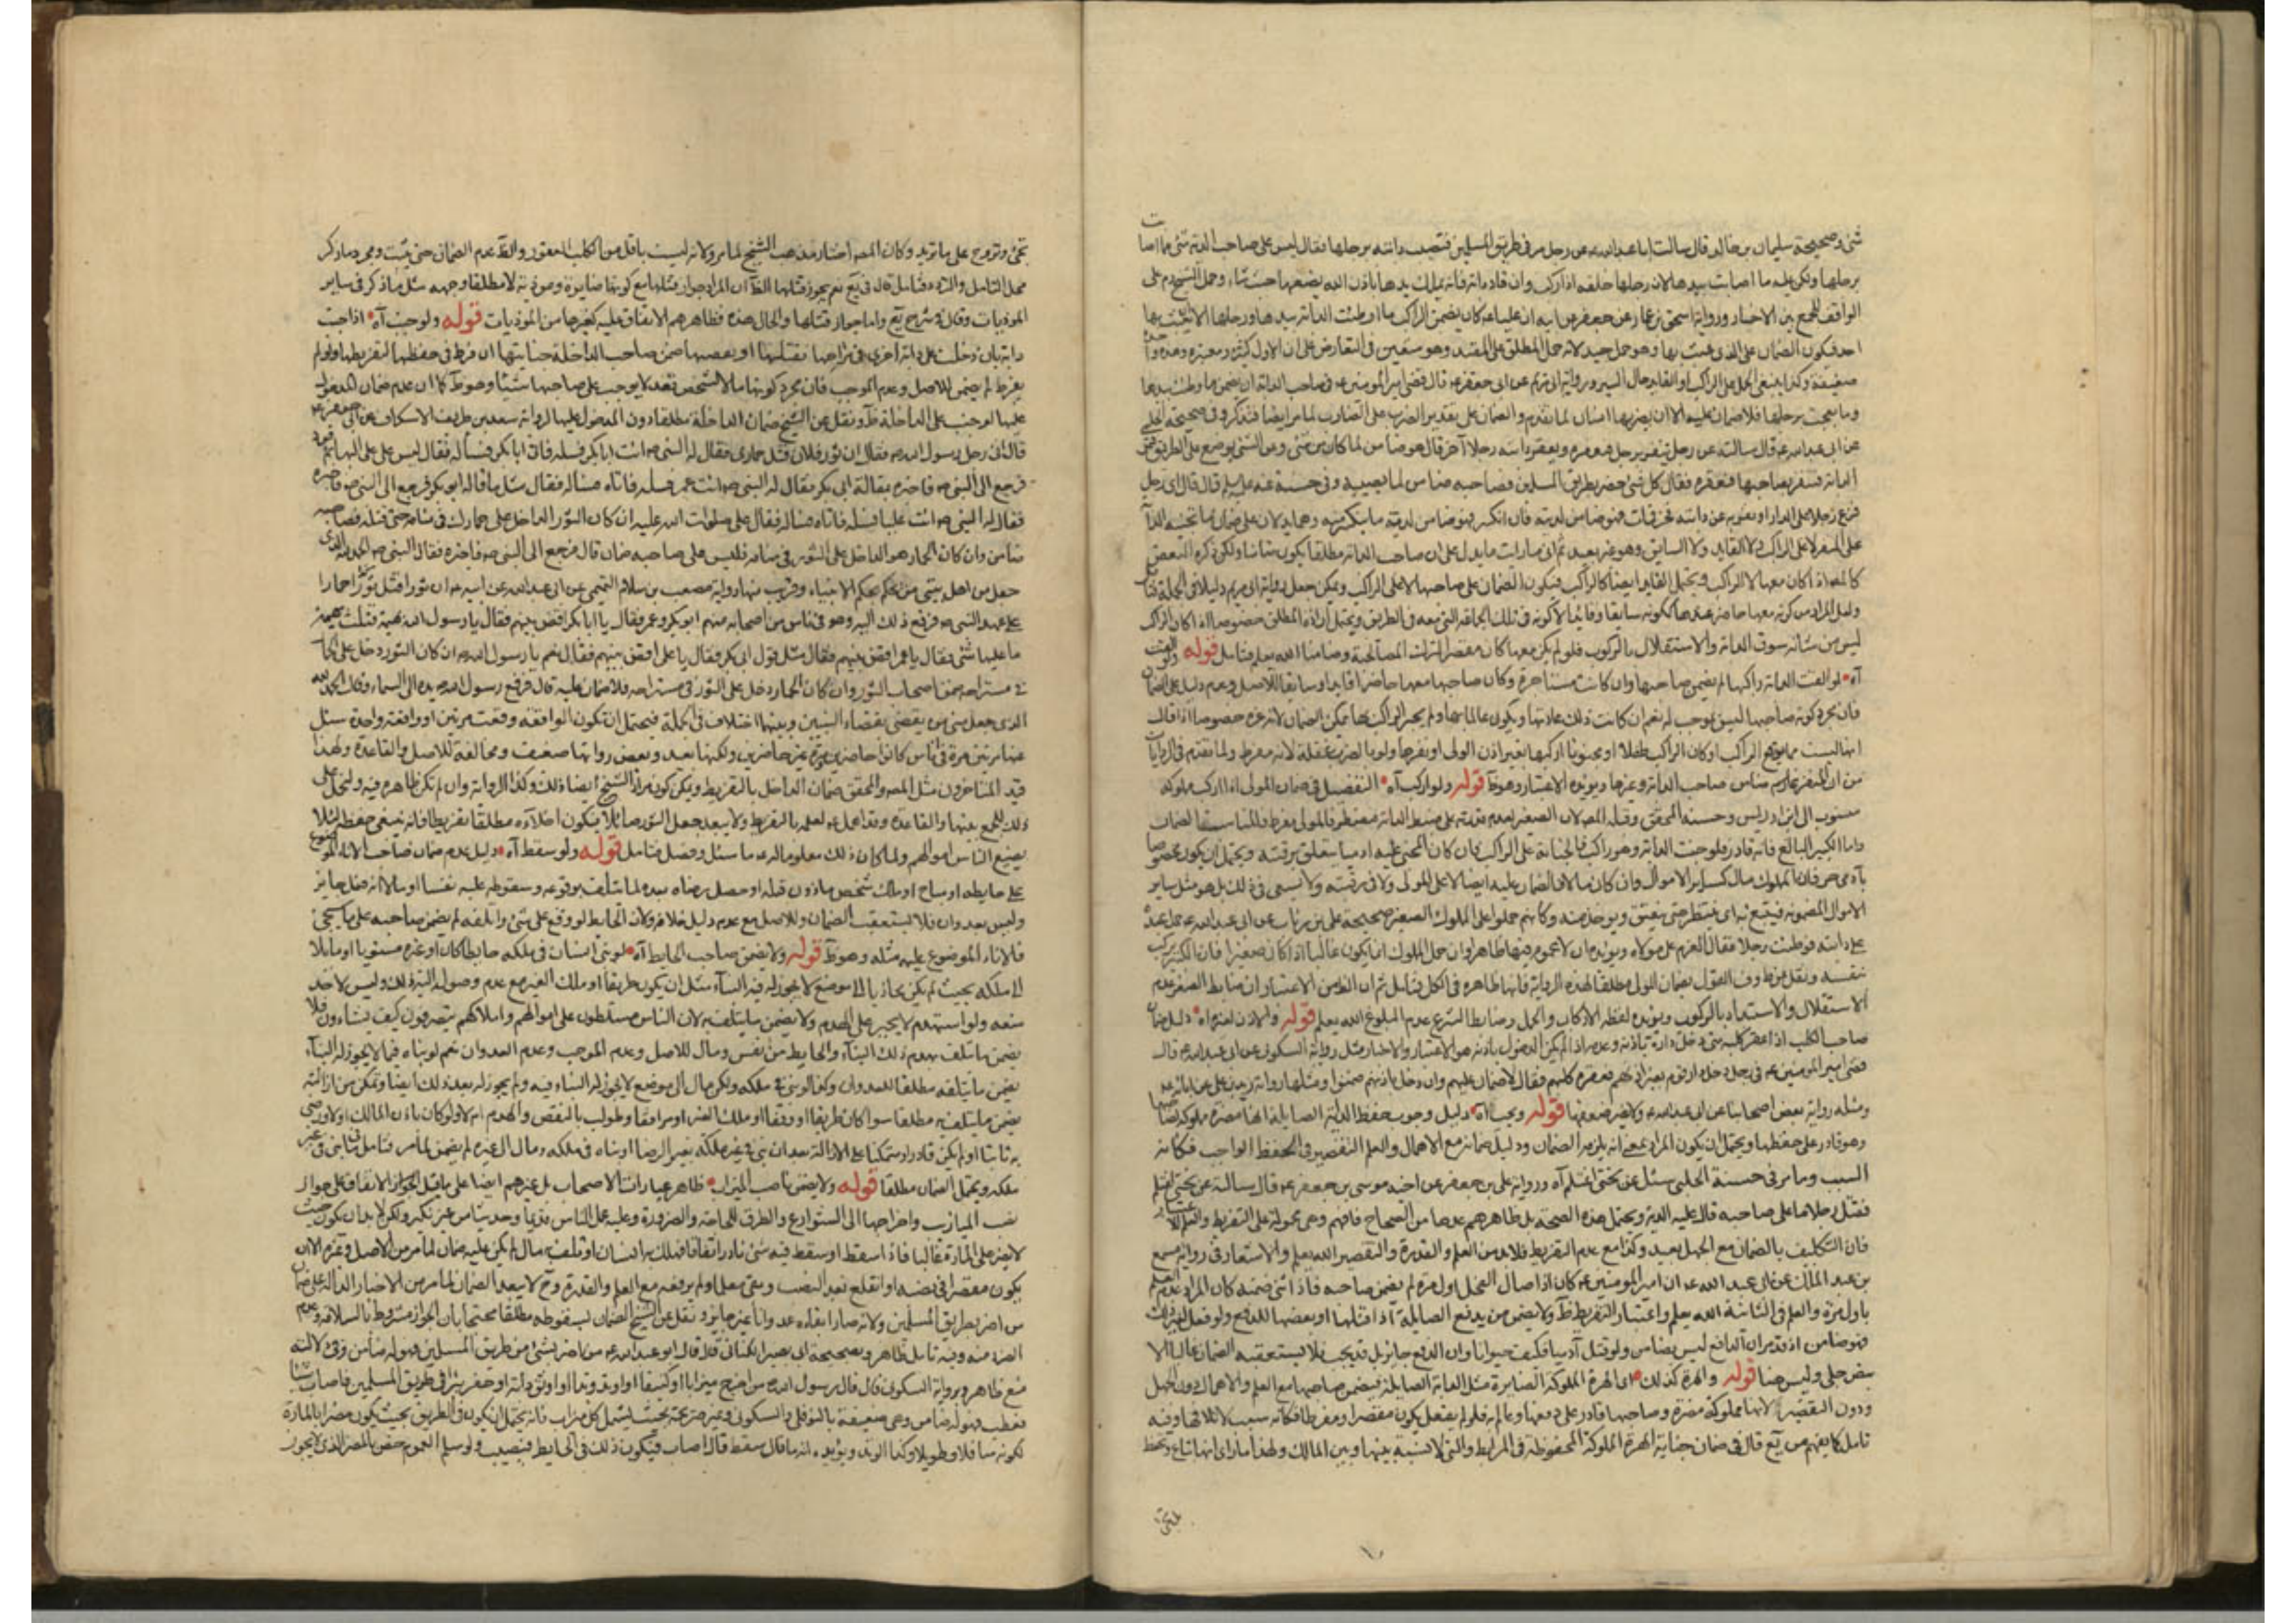 شئ وصحيحة سليمان بن خالد قال سالت ابا عبد الله عن رجل مر في طريق المسلمين فتصيب دابته برجلها فقال ليس على صاحب الدابة شئ مما اصابت
برجلها ولكن عليه ما اصابت بيدها لان رجلها خلفه اذا ركب وان قاد دابته فانه يملك يدها باذن الله يضعها حيث شاء وحمل الشيخ
الواقف للجمع بين الاخبار ورواية اسحق بن عمار عن جعفر عن ابيه ان عليا كان يضمن الراكب ما اوطئت الدابة بيدها ورجلها الا ان يعبث بها
احد فيكون الضمان على الذي عبث بها وهو حمل جيد لانه حمل المطلق على المقيد وهو متعين في التعارض على ان الاول كثيرة ومعتبرة وهذه واحدة
ضعيفة وكذا ينبغي الحمل على الراكب او القايد حال السير ورواية ابي مريم عن ابي جعفر قال قضى امير المؤمنين في صاحب الدابة انه يضمن ما وطئت بيدها
وما نفحت برجلها فلا ضمان عليه الا ان يضربها انسان لما تقدم والضمان على تقدير الضرب على الضارب لما مر ايضا فتذكر وفي صحيحة الحلبي
عن ابي عبد الله قال سالته عن رجل ينفر برجل فيعقره ويعقر دابته رجلا آخر قال هو ضامن لما كان من شئ وعن الشئ يوضع على الطريق فتمر
الدابة فتنفر بصاحبها فتعقره فقال كل شئ يضر بطريق المسلمين فصاحبه ضامن لما يصيبه وفي حسنة عنه قال اي رجل
فزع رجلا على الجدار او نفر به عن دابته فخر فمات فهو ضامن لديته فان انكسر فهو ضامن لدية ما ينكسر منه وهما يدلان على ضمان ما تجنيه الدابة
على المنفر لا على الراكب ولا القايد ولا السايق وهو غير بعيد ثم ان عبارات ما يدل على ان صاحب الدابة مطلقا يكون ضامنا ولكن ذكره البعض
كالمص اذا كان معها لا الراكب ويحتمل القايد ايضا كالراكب فيكون الضمان على صاحبها لا على الراكب ويمكن جعل رواية ابي مريم دليلا في الجملة فتامل
ليس من شانه سوق الدابة والاستقلال بالركوب فلو لم يكن معها كان مقصرا لترك المصالحة وضامنا الله يعلم فتامل قوله ولو القت
آه لو القت الدابة راكبها لم يضمن صاحبها وان كانت مستاجرة وكان صاحبها معها حاضرا قايدا وسايقا للاصل وعدم دليل على الضمان
فان مجرد كونه صاحبها ليس بموجب له نعم ان كانت ذلك عادتها ويكون عالما بها ولم يخبر الراكب بها يمكن الضمان لانه غره خصوصا اذا قال
من ان المنفر ضامن صاحب الدابة وغيرها ويؤيده الاعتبار وهو ظ قوله ولو اركب آه التفصيل في ضمان المولى اذا اركب مملوكه
منسوب الى ابن ادريس وحسنه المحقق وقبله المص لان الصغير لعدم قدرته على ضبط الدابة
واما الكبير البالغ فانه قادر فلو جنت الدابة وهو راكب فالجناية على الراكب فان كان المجني عليه ادميا يتعلق برقبته ويحتمل ان يكون مخصوصا
بآدمي حر فان المملوك مال كساير الاموال وان كان مالا فالضمان عليه ايضا لا على المولى ولا في رقبته ولا يسعى في ذلك بل هو مثل ساير
الاموال المضمونة فيتبع به اي ينتظر حتى يعتق ويؤخذ منه وكانهم حملوا على المملوك الصغير صحيحة علي بن رئاب عن ابي عبد الله حمل عبده
على دابته فوطئت رجلا فقال الغرم على مولاه ويؤيده ان لا عموم فيها ظاهرا وان حمل المملوك انما يكون غالبا اذا كان صغيرا فان الكبير يركب
بنفسه ونقل عن ظ وف القول بضمان المولى مطلقا لهذه الرواية فانها ظاهرة في الكل فتامل ثم ان الظ من الاعتبار ان مناط الصغر عدم
الاستقلال والاستبداد بالركوب ويؤيده لفظة الاركاب والحمل وضابط الشرع عدم البلوغ الله يعلم قوله دليل ضمان
صاحب الكلب اذا عقر كلبه من دخل داره باذنه وعدمه اذا لم يكن الدخول باذنه هو الاعتبار والاخبار مثل رواية السكوني عن ابي عبد الله قال
قضى امير المؤمنين في رجل دخل دار قوم بغير اذنهم فعقره كلبهم فقال لا ضمان عليهم وان دخل باذنهم ضمنوا ومثلها رواية زيد بن علي عن ابائه
ومثله رواية بعض اصحابنا عن ابي عبد الله قوله ويجب آه دليل وجوب حفظ الدابة الصايلة انها مضرة مملوكة لصاحبها
وهو قادر على حفظها ويحتمل ان يكون المراد بمعنى انه يلزمه الضمان ودليل ضمانه مع الاهمال والعلم التقصير في الحفظ الواجب فكانه
السبب وما مر في حسنة الحلبي سئل عن بختي اغتلم آه ورواية علي بن جعفر عن اخيه موسى بن جعفر قال سالته عن بختي اغتلم
فقتل رجلا ما على صاحبه قال عليه الدية ويحتمل هذه الصحة بل ظاهرهم عدها من الصحاح فافهم وهي محمولة على التفريط والعلم
فان التكليف بالضمان مع الجهل بعيد وكذا مع عدم التفريط فلا بد من العلم والقدرة والتقصير الله يعلم والاشعار في رواية مسمع
بن عبد الملك عن ابي عبد الله ان امير المؤمنين كان اذا صال الفحل اول مرة لم يضمن صاحبه فاذا اثنى ضمنه كان المراد عدم العلم
باول مرة والعلم في الثانية الله يعلم واعتبار التفريط ظ ولا يضمن من يدفع الصايلة آه اذا قتلها او بعضها للدفع ولو فعل لغير ذلك
فهو ضامن اذ تقدير ان الدافع ليس بضامن ولو قتل آدميا فكيف حيوانا وان الدفع جايز بل قد يجب فلا يستعقبه الضمان غالبا الا
بنص جلي وليس هنا قوله والهرة كذلك اي الهرة المملوكة الضايرة مثل الدابة الصايلة فيضمن صاحبها مع العلم والاهمال دون الجهل
ودون التقصير لانها مملوكة مضرة وصاحبها قادر على دفعها وعالم به فلو لم يفعل يكون مقصرا ومفرطا فكانه سبب لاتلافها وفيه
تامل كما يفهم من يع قال في ضمان جناية الهرة المملوكة
تجئ وتروح على ما تريد وكان المص اختار مذهب الشيخ لما مر ولانه ليست باقل من الكلب العقور والظ عدم الضمان حتى يثبت ومجرد ما ذكر
محل التامل والتردد فتامل قال في يع نعم يجوز قتلها الظ ان المراد جواز قتلها مع كونها ضايرة وموذية لا مطلقا وجهه مثل ما ذكر في ساير
الموذيات وقال في شرح يع واما جواز قتلها والحال هذه فظاهرهم الاتفاق عليه كغيرها من الموذيات قوله ولو جنت آه اذا جنت
دابة بان دخلت على دابة اخرى في مراحها فقتلتها او بعضها ضمن صاحب الداخلة جنايتها ان فرط في حفظها لتفريطها ولو لم
يفرط لم يضمن للاصل وعدم الموجب فان مجرد كونها مالا لشخص فقد لا يوجب على صاحبها شيئا وهو ظ كما ان عدم ضمان المدخول
عليها لو جنت على الداخلة ظ ونقل عن الشيخ ضمان الداخلة مطلقا دون المدخول عليها لرواية سعد بن طريف الاسكاف عن ابي جعفر
قال اتى رجل رسول الله فقال ان ثور فلان قتل حماري فقال له النبي ائت ابا بكر فسله فاتى ابا بكر فساله فقال ليس على البهايم قود
فرجع الى النبي فاخبره بمقالة ابي بكر فقال له النبي ائت عمر فسله فاتاه فساله فقال مثل ما قال ابو بكر فرجع الى النبي فاخبره
فقال له النبي ائت عليا فسله فاتاه فساله فقال علي صلوات الله عليه ان كان الثور الداخل على حمارك في منامه حتى قتله فصاحبه
ضامن وان كان الحمار هو الداخل على الثور في منامه فليس على صاحبه ضمان قال فرجع الى النبي فاخبره فقال النبي الحمد لله الذي
جعل من اهل بيتي من يحكم بحكم الانبياء وقريب منها رواية مصعب بن سلام التميمي عن ابي عبد الله عن ابيه ان ثورا قتل حمارا
على عهد النبي فرفع ذلك اليه وهو في ناس من اصحابه منهم ابو بكر وعمر فقال يا ابا بكر اقض بينهم فقال يا رسول الله بهيمة قتلت بهيمة
ما عليها شئ فقال يا عمر اقض بينهم فقال مثل قول ابي بكر فقال يا علي اقض بينهم فقال نعم يا رسول الله ان كان الثور دخل على الحمار
في مستراحه ضمن اصحاب الثور وان كان الحمار دخل على الثور في مستراحه فلا ضمان عليه قال فرفع رسول الله يده الى السماء وقال الحمد لله
الذي جعل مني من يقضي بقضاء النبيين وبينهما اختلاف في الجملة فيحتمل ان تكون الواقعة وقعت مرتين او واقعة واحدة سئل
عنها مرتين مرة في ناس كانوا حاضرين ومرة غير حاضرين ولكنها بعيد وبعض رواتها ضعيف ومخالفة للاصل والقاعدة ولهذا
قيد المتاخرون مثل المص والمحقق ضمان الداخل بالتفريط ويمكن كون مراد الشيخ ايضا ذلك وكذا الرواية وان لم تكن ظاهرة فيه ولتحمل على
ذلك للجمع بينها والقاعدة
يضيع الناس اموالهم ولما كان ذلك معلوما له ما سئل وفصل فتامل قوله ولو سقط آه دليل عدم ضمان صاحب الاناء الموضوع
على حايطه او مباح او ملك شخص ماذون قبله او حصل رضاه بعده لما يتلف بوقوعه وسقوطه عليه نفسا او مالا انه فعل جايز
وليس بعدوان فلا يستعقب الضمان وللاصل مع عدم دليل خلافه ولان الحايط لو وقع على شئ واتلفه لم يضمن صاحبه على ما سيجئ
فالاناء الموضوع عليه مثله وهو ظ قوله ولا يضمن صاحب الحايط آه لو بنى انسان في ملكه حايطا كان او غيره مستويا او مايلا
الى ملكه بحيث لم يكن محاذيا الى موضع لا يجوز له فيه البناء مثل ان يكون طريقا او ملك الغير مع عدم وصوله الى ذلك وليس لاحد
منعه ولو استهدم لا يجبر على الهدم ولا يضمن ما يتلف به لان الناس مسلطون على اموالهم واملاكهم يتصرفون كيف يشاءون فلا
يضمن ما يتلف بهدم ذلك البناء والحايط من نفس ومال للاصل وعدم الموجب وعدم العدوان نعم لو بناه فيما لا يجوز له البناء
يضمن ما يتلفه مطلقا للعدوان وكذا لو بنى في ملكه ولكن مال الى موضع لا يجوز له البناء فيه ولم يجوز له بعد ذلك ايضا وتمكن من ازالته
يضمن ما يتلف به مطلقا سواء كان طريقا او وقفا او ملك الغير او مرافقا وطولب بالنقض والهدم ام لا ولو كان باذن المالك اولا ورضي
به ثانيا او لم يكن قادرا ومتمكنا على الازالة بعد ان بنى في غير ملكه بغير الرضا او بناه في ملكه ومال الى غيره لم يضمن لما مر فتامل
ملكه ويحتمل الضمان مطلقا قوله ولا يضمن ناصب الميزاب ظاهر عبارات الاصحاب بل غيرهم ايضا على ما قيل الجواز الاتفاق على جواز
نصب الميازيب واخراجها الى الشوارع والطرق للحاجة والضرورة وعليه عمل الناس قديما وحديثا من غير نكير ولكن لا بد ان يكون بحيث
لا يضر على المارة غالبا فاذا سقط او سقط فيه شئ نادرا اتفاقا فهلك به انسان او تلف به مال لم يكن عليه ضمان لما مر من الاصل وغيره الا ان
يكون مقصرا في نصبه او انقلع بعد النصب وبقي معلقا ولم يرفعه مع العلم والقدرة وح لا يبعد الضمان لما مر من الاخبار الدالة على ضمان
من اضر بطريق المسلمين ولانه صار ابقاءه عدوانا غير جايز ونقل عن الشيخ الضمان بسقوطه مطلقا محتجا بان الجواز مشروط بالسلامة وعدم
الضرر منه وفيه تامل ظاهر وبصحيحة ابي الصباح الكناني قال قال ابو عبد الله من اضر بشئ من طريق المسلمين فهو له ضامن وفي دلالته
منع ظاهر وبرواية السكوني قال قال رسول الله من اخرج ميزابا او كنيفا او اوتد وتدا او اوثق دابة او حفر بئرا في طريق المسلمين فاصاب شيئا
فعطب فهو له ضامن وهي ضعيفة بالنوفلي والسكوني وغير صريحة بحيث يشمل كل ميزاب فانه يحتمل ان يكون في الطريق بحيث يكون مضرا بالمارة
لكونه سافلا وطويلا وكذا الوتد ويؤيده انه ما قال سقط قال اصاب فيكون ذلك في الحايط فيصيب ولو سلم العموم خص بالمضر الذي لا يجوز